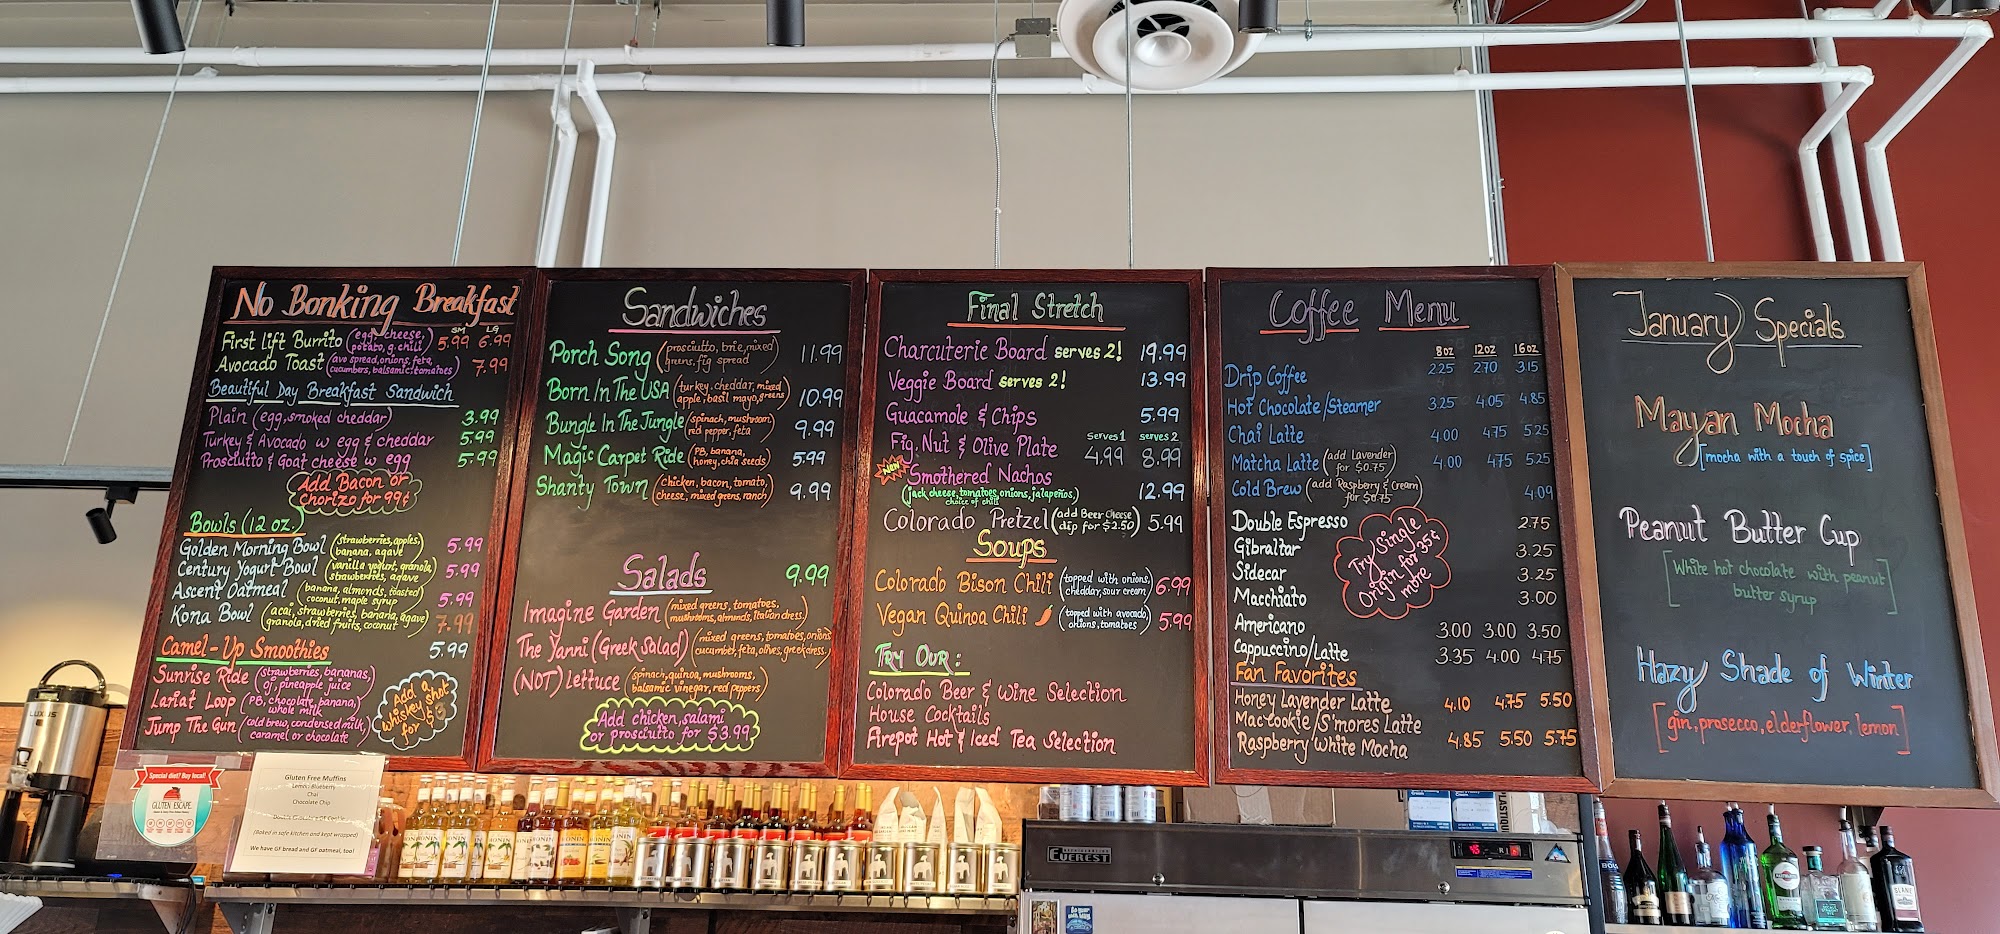 No Bonking Breakfast
SM LG
First Lift Burrito (egg, cheese, potato, g. chili) 5.99 6.99
Avocado Toast (avo spread, onions, feta, cucumbers, balsamic, tomatoes) 7.99
Beautiful Day Breakfast Sandwich
Plain (egg, smoked cheddar) 3.99
Turkey & Avocado w egg & cheddar 5.99
Prosciutto & Goat cheese w egg 5.99
Add Bacon or
chorizo for 99¢
Bowls (12 oz.)
Golden Morning Bowl (strawberries, apples, banana, agave) 5.99
Century Yogurt Bowl (vanilla yogurt, granola, strawberries, agave) 5.99
Ascent Oatmeal (banana, almonds, toasted coconut, maple syrup) 5.99
Kona Bowl (acai, strawberries, banana, agave, granola, dried fruits, coconut) 7.99
Camel-Up Smoothies 5.99
Sunrise Ride (strawberries, bananas, oj, pineapple juice)
Lariat Loop (PB, chocolate, banana, whole milk)
Jump The Gun (cold brew, condensed milk, caramel or chocolate)
Add a
whiskey shot
for
Sandwiches
Porch Song (prosciutto, brie, mixed greens, fig spread) 11.99
Born In The USA (turkey, cheddar, mixed apple, basil mayo, greens) 10.99
Bungle In The Jungle (spinach, mushroom, red pepper, feta) 9.99
Magic Carpet Ride (PB, banana, honey, chia seeds) 5.99
Shanty Town (chicken, bacon, tomato, cheese, mixed greens, ranch) 9.99
Salads 9.99
Imagine Garden (mixed greens, tomatoes, mushrooms, almonds, Italian dress.)
The Yanni (Greek Salad) (mixed greens, tomatoes, onions, cucumber, feta, olives, greek dress.)
(NOT) Lettuce (spinach, quinoa, mushrooms, balsamic vinegar, red peppers)
Add chicken, salami
or prosciutto for $3.99
Final Stretch
Charcuterie Board serves 2! 19.99
Veggie Board serves 2! 13.99
Guacamole & Chips 5.99
serves 1 serves 2
Fig, Nut & Olive Plate 4.99 8.99
New
Smothered Nachos 12.99
(jack cheese, tomatoes, onions, jalapeños, choice of chili)
Colorado Pretzel (add Beer Cheese dip for $2.50) 5.99
Soups
Colorado Bison Chili (topped with onions, cheddar, sour cream) 6.99
Vegan Quinoa Chili (topped with avocado, onions, tomatoes) 5.99
Try Our:
Colorado Beer & Wine Selection
House Cocktails
Firepot Hot & Iced Tea Selection
Coffee Menu
8oz 12oz 16oz
Drip Coffee 2.25 2.70 3.15
Hot Chocolate/Steamer 3.25 4.05 4.85
Chai Latte 4.00 4.75 5.25
Matcha Latte (add Lavender for $0.75) 4.00 4.75 5.25
Cold Brew (add Raspberry & Cream for $0.75) 4.09
Double Espresso 2.75
Gibraltar 3.25
Sidecar 3.25
Macchiato 3.00
Try Single
Origin for 35¢
more
Americano 3.00 3.00 3.50
Cappuccino/Latte 3.35 4.00 4.75
Fan Favorites
Honey Lavender Latte 4.10 4.75 5.50
Macrookie/S'mores Latte
Raspberry White Mocha 4.85 5.50 5.75
January Specials
Mayan Mocha
[mocha with a touch of spice]
Peanut Butter Cup
[White hot chocolate with peanut
butter syrup]
Hazy Shade of Winter
[gin, prosecco, elderflower, lemon]
LUXUS
Special diet? Buy local!
GLUTEN ESCAPE
Gluten Free Muffins
Lemon Blueberry
Chai
Chocolate Chip
(Baked in safe kitchen and kept wrapped)
We have GF bread and GF oatmeal, too!
MONIN
EVEREST